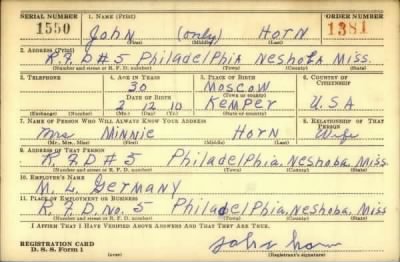 SERIAL NUMBER 1. NAME (Print) ORDER NUMBER
1550 John (only) Horn 1381
(First) (Middle) (Last)
2. ADDRESS (Print)
R.F.D #5 Philadelphia Neshoba Miss.
(Number and street or R. F. D. number) (Town) (County) (State)
3. TELEPHONE 4. AGE IN YEARS 5. PLACE OF BIRTH 6. COUNTRY OF CITIZENSHIP
30 Moscow
DATE OF BIRTH (Town or county)
2 12 10 Kemper U.S.A
(Exchange) (Number) (Mo.) (Day) (Yr.) (State or country)
7. NAME OF PERSON WHO WILL ALWAYS KNOW YOUR ADDRESS 8. RELATIONSHIP OF THAT PERSON
Mrs Minnie Horn Wife
(Mr., Mrs., Miss) (First) (Middle) (Last)
9. ADDRESS OF THAT PERSON
R.F.D #5 Philadelphia, Neshoba, Miss
(Number and street or R. F. D. number) (Town) (County) (State)
10. EMPLOYER'S NAME
M. L. Germany
11. PLACE OF EMPLOYMENT OR BUSINESS
R.F.D. No. 5 Philadelphia, Neshoba, Miss
(Number and street or R. F. D. number) (Town) (County) (State)
I AFFIRM THAT I HAVE VERIFIED ABOVE ANSWERS AND THAT THEY ARE TRUE.
REGISTRATION CARD
D. S. S. Form 1 (over) John horn
(Registrant's signature)